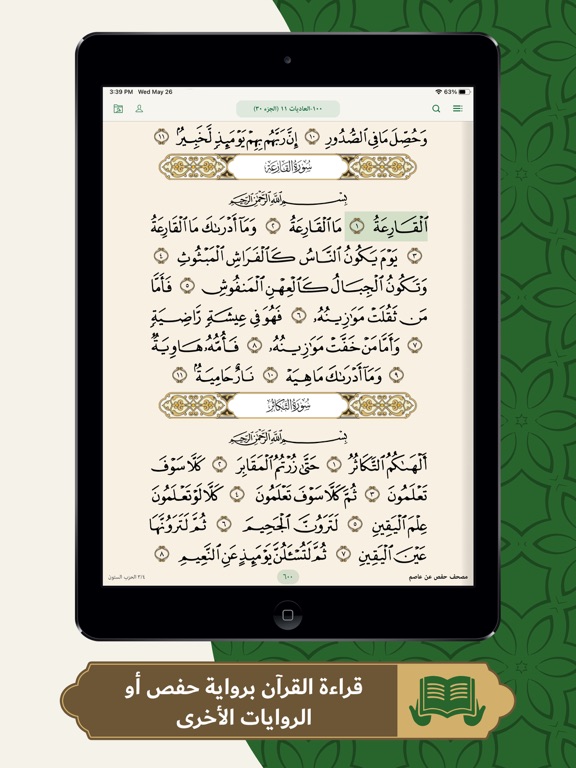 3:39 PM Wed May 26 63%
١٠٠-العاديات ١١ (الجزء ٣٠)
وَحُصِّلَ مَا فِي ٱلصُّدُورِ ١٠ إِنَّ رَبَّهُم بِهِمْ يَوْمَئِذٍ لَّخَبِيرٌۢ ١١
سُورَةُ القَارِعَة
بِسْمِ ٱللَّهِ ٱلرَّحْمَٰنِ ٱلرَّحِيمِ
ٱلْقَارِعَةُ ١ مَا ٱلْقَارِعَةُ ٢ وَمَآ أَدْرَىٰكَ مَا ٱلْقَارِعَةُ
٣ يَوْمَ يَكُونُ ٱلنَّاسُ كَٱلْفَرَاشِ ٱلْمَبْثُوثِ ٤
وَتَكُونُ ٱلْجِبَالُ كَٱلْعِهْنِ ٱلْمَنفُوشِ ٥ فَأَمَّا
مَن ثَقُلَتْ مَوَٰزِينُهُۥ ٦ فَهُوَ فِي عِيشَةٍ رَّاضِيَةٍ
٧ وَأَمَّا مَنْ خَفَّتْ مَوَٰزِينُهُۥ ٨ فَأُمُّهُۥ هَاوِيَةٌ
٩ وَمَآ أَدْرَىٰكَ مَا هِيَهْ ١٠ نَارٌ حَامِيَةٌۢ ١١
سُورَةُ التَّكَاثُر
بِسْمِ ٱللَّهِ ٱلرَّحْمَٰنِ ٱلرَّحِيمِ
أَلْهَىٰكُمُ ٱلتَّكَاثُرُ ١ حَتَّىٰ زُرْتُمُ ٱلْمَقَابِرَ ٢ كَلَّا سَوْفَ
تَعْلَمُونَ ٣ ثُمَّ كَلَّا سَوْفَ تَعْلَمُونَ ٤ كَلَّا لَوْ تَعْلَمُونَ
عِلْمَ ٱلْيَقِينِ ٥ لَتَرَوُنَّ ٱلْجَحِيمَ ٦ ثُمَّ لَتَرَوُنَّهَا
عَيْنَ ٱلْيَقِينِ ٧ ثُمَّ لَتُسْـَٔلُنَّ يَوْمَئِذٍ عَنِ ٱلنَّعِيمِ ٨
مصحف حفص عن عاصم ٦٠٠ ٢١٤ الحزب الستون
قراءة القرآن برواية حفص أو
الروايات الأخرى